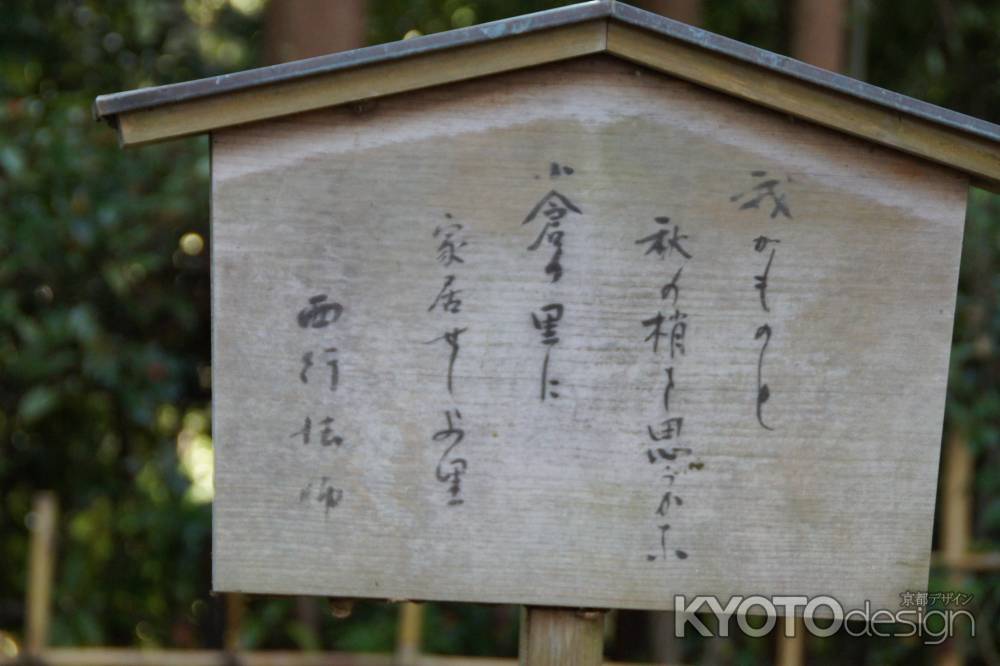 我かものと
秋の梢を思ふかな
小倉の里に
家居せしよ里
西行法師
京都デザイン
KYOTOdesign